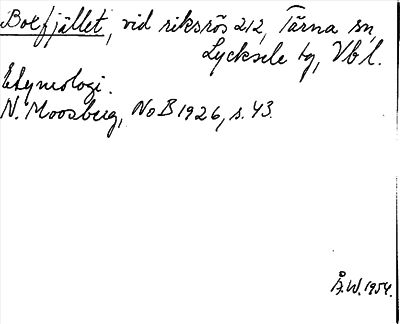 Bolfjället, vid riksrös 212, Tärna sn,
Lycksele tg, Vb l.
Etymologi.
N. Moosberg, NoB 1926, s. 43.
Å.W. 1954.